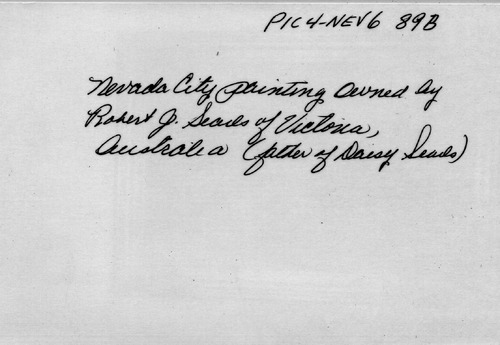 PIC 4-NEV6 89B
Nevada City painting owned by
Robert J. Searls of Victoria,
Australia (father of Daisy Searls)